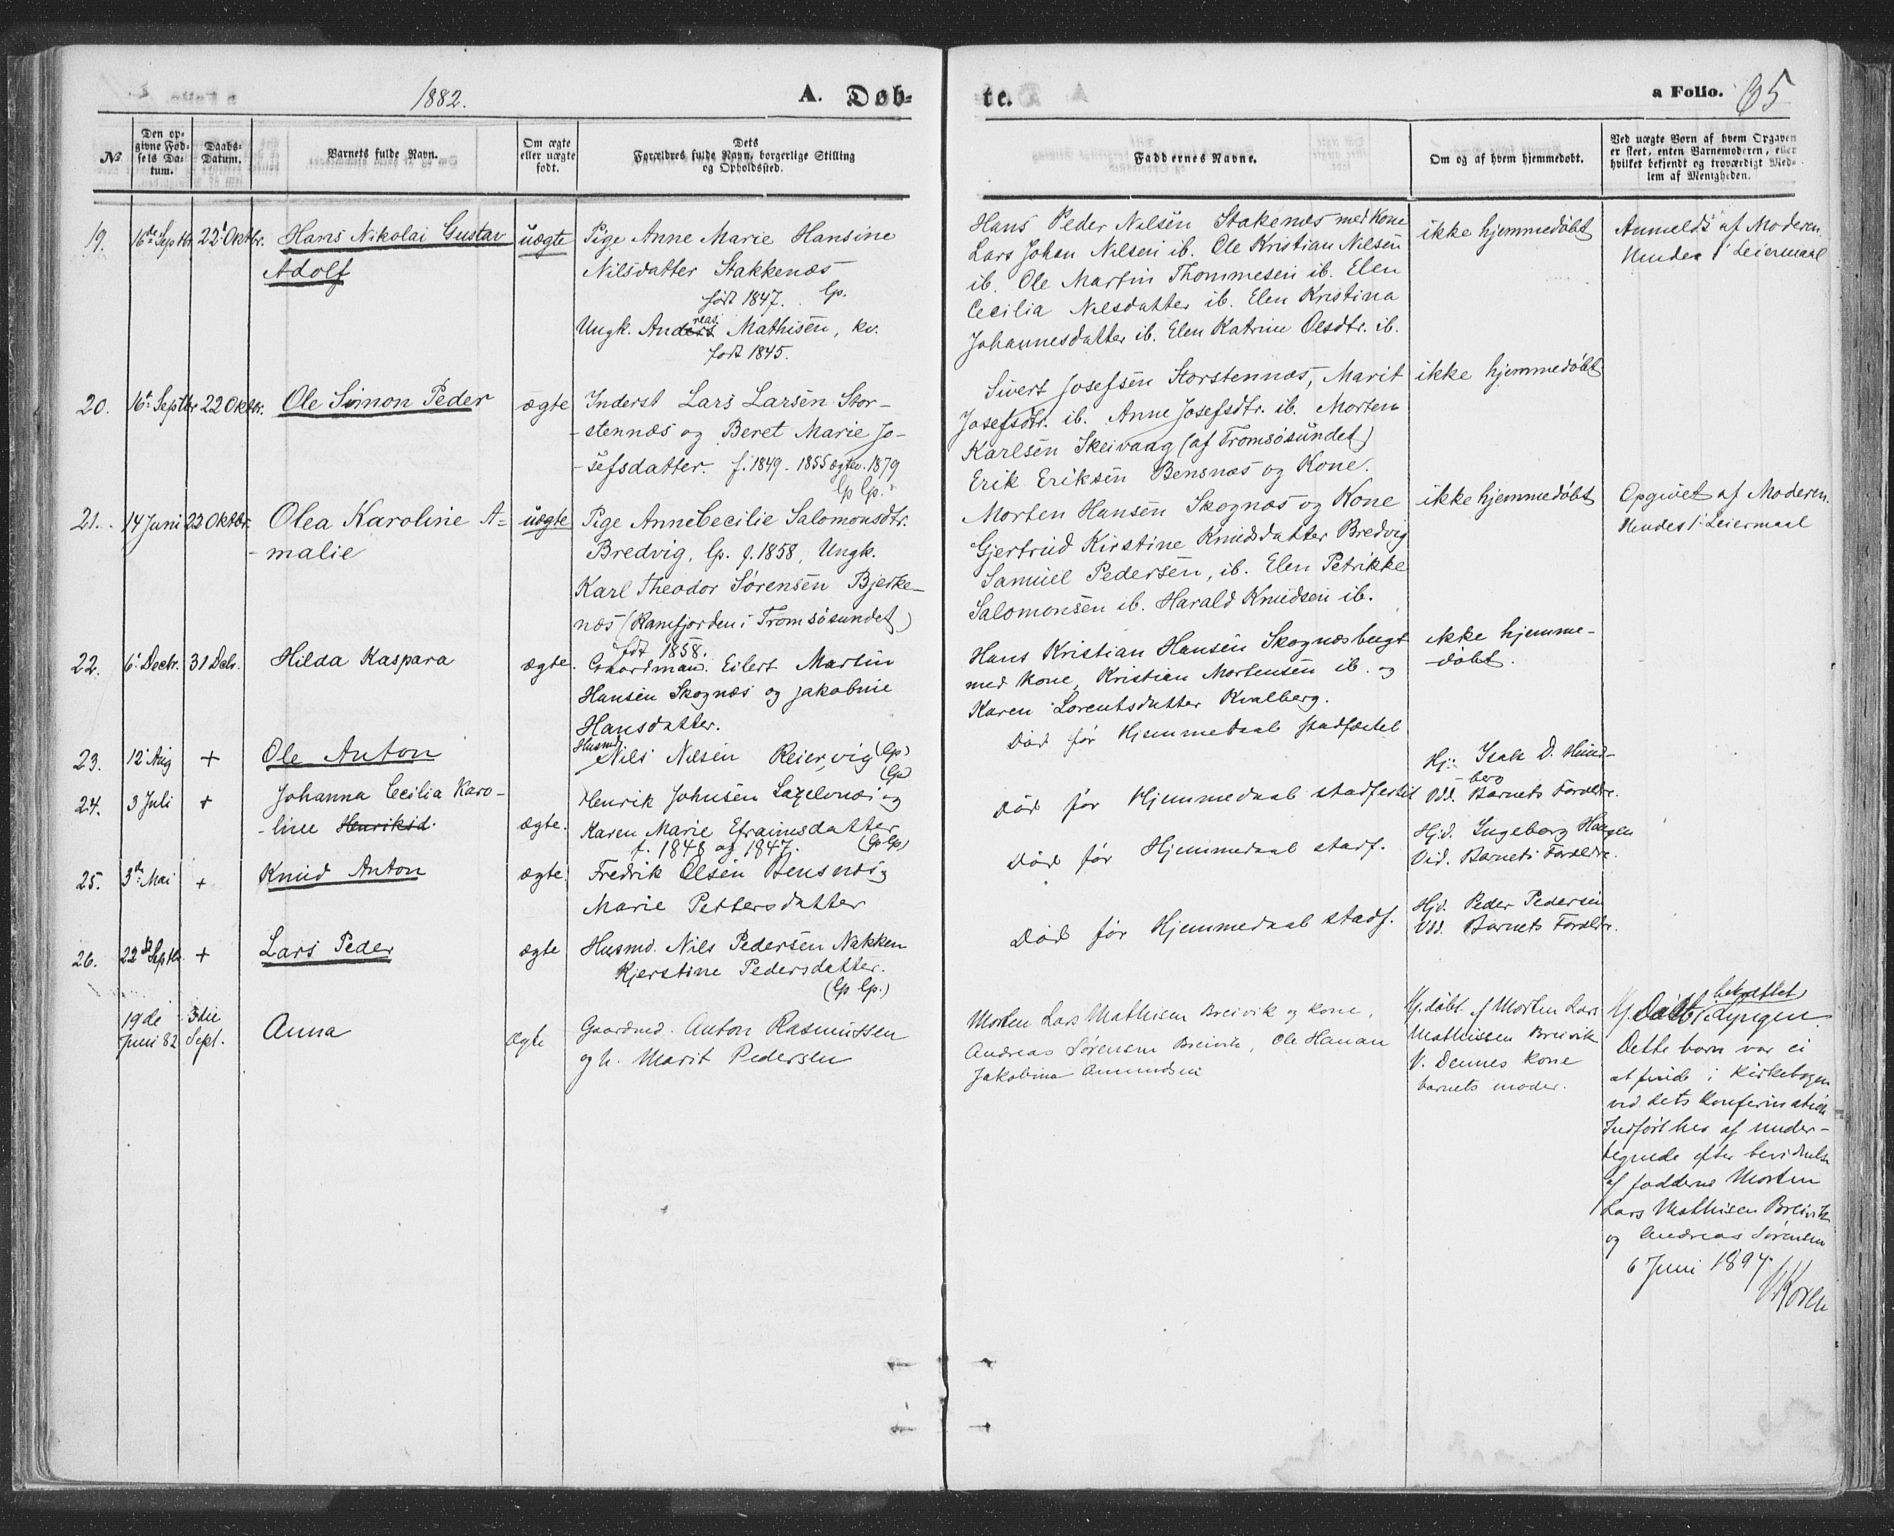 1882.
A. Døb-
te.
a Folio. 65
No
Den op-
givne Fød-
sels Da-
tum.
Daabs-
Datum.
Barnets fulde Navn.
Om ægte
eller uægte
født.
Dets
Forældres fulde Navn, borgerlige Stilling
og Opholdssted.
Faddernes Navne.
Om og af hvem hjemmedøbt.
Ved uægte Børn af hvem Opgaven
er skeet, enten Barnemoderen, eller
hvilket bekjendt og troværdigt Med-
lem af Menigheden.
19. 16de Septbr. 22 Oktbr. Hans Nikolai Gustav
Adolf
uægte
Pige Anne Marie Hansine
Nilsdatter Stakkenæs
født 1847. Lp.
Ungk. Andreas Mathisen, kv.
født 1845.
Hans Peder Nilsen Stakenæs med Kone
Lars Johan Nilsen ib. Ole Kristian Nilsen
ib. Ole Martin Thommesen ib. Elen
Cecilia Nilsdatter ib. Elen Kristina
Johannesdatter ib. Elen Katrine Olsdtr. ib.
ikke hjemmedøbt
Anmeldt af Moderen
Hendes 1' Leiermaal
20. 16 Septbr 22 Oktbr. Ole Simon Peder
ægte
Inderst Lars Larsen Stor-
-stennæs og Beret Marie Jo-
-sefsdatter. f. 1849 - 1855 ægtev. 1879
Lp Lp.
Sivert Josefsen Storstennæs, Marit
Josefsdtr. ib. Anne Josefsdtr. ib. Morten
Karlsen Skeivaag (af Tromsøsundet)
Erik Eriksen Bensnæs og Kone.
ikke hjemmedøbt
21. 14 Juni 22 Oktbr. Olea Karoline A-
-malie
uægte
Pige Anne Cecilie Salomonsdtr.
Bredvig, Lp. f. 1858, Ungk.
Karl Theodor Sørensen Bjerke-
næs (Ramfjorden i Tromsøsundet)
født 1858.
Morten Hansen Skognæs og Kone
Gjertrud Kirstine Knudsdatter Bredvig
Samuel Pedersen, ib. Elen Petrikke
Salomonsen ib. Harald Knudsen ib.
ikke hjemmedøbt
Opgivet af Moderen.
Hendes 1' Leiermaal
22. 6 Decbr. 31 Decbr. Hilda Kaspara
ægte.
Gaardman. Eilert Martin
Hansen Skognæs og Jakobine
Hansdatter.
Hans Kristian Hansen Skognæsbugt
med Kone, Kristian Mortensen ib. og
Karen Lorentsdatter Kvalberg.
ikke hjemme-
-døbt.
23. 12 Aug + Ole Anton
Husmd
Nils Nilsen Reiervig (Lp)
(Lp)
Død før Hjemmedaab stadfæstet
Hj: Isak D. Hund-
-berg
Vdd. Barnets Forældre.
24. 3 Juli + Johanna Cecilia Karo-
-line Henriksd.
ægte.
Henrik Johnsen og
Karen Marie Efraimsdatter
f. 1848 og 1847. (Lp Lp)
Død før Hjemmedaab stadfestet
Hjd. Ingeborg Haagen
Vid. Barnets Forældre.
25. 3de Mai + Knud Anton
ægte
Fredrik Olsen Bensnæs
Marie Pettersdatter
Død før Hjemmedaab stadf.
Hjd. Peder Pedersen
Vdd. Barnets Forældre.
26. 22 Septbr + Lars Peder
ægte
Husmd. Nils Pedersen Nakken
Kjerstine Pedersdatter.
(Lp Lp.)
Død før Hjemmedaab stadf.
19de
Juni 82
3die
Sept.
Anna
ægte
Gaardmd. Anton Rasmussen
og h. Marit Pedersen
Morten Lars Mathisen Breivik og kone,
Andreas Sørensen Breivik, Ole Hanan
Jakobina Amundsen
Hj.døbt af Morten Lars
Mathissen Breivik
V. Dennes kone
barnets moder.
bekræftet
Hj. Døbt i Lyngen.
Dette barn var ei
at finde i kirkebogen
ved dets konfirmation
Indført her af under-
tegnede efter bevidnelse
af fadderne Morten
Lars Mathisen Breivik
og Andreas Sørensen
6 Juni 1897.
Koren